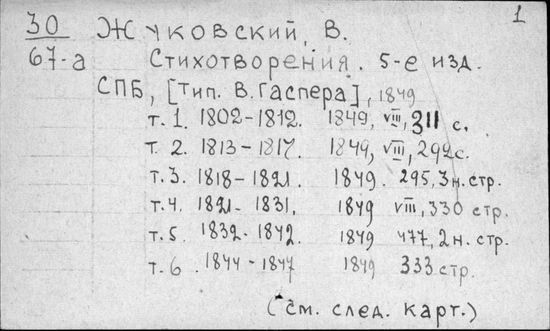 30 Жуковский, В. 1
67-а Стихотворения. 5-е изд.
СПБ, [Тип. В. Гаспера], 1849
т. 1. 1802-1812. 1849, VIII, 311 с.
т. 2. 1813-1817. 1849, VIII, 292 с.
т. 3. 1818-1821. 1849. 295, 3 н. стр.
т. 4. 1821-1831. 1849 VIII, 330 стр.
т. 5. 1832-1842. 1849 477, 2 н. стр.
т. 6. 1844-1847 1849 333 стр.
(См. след. карт.)